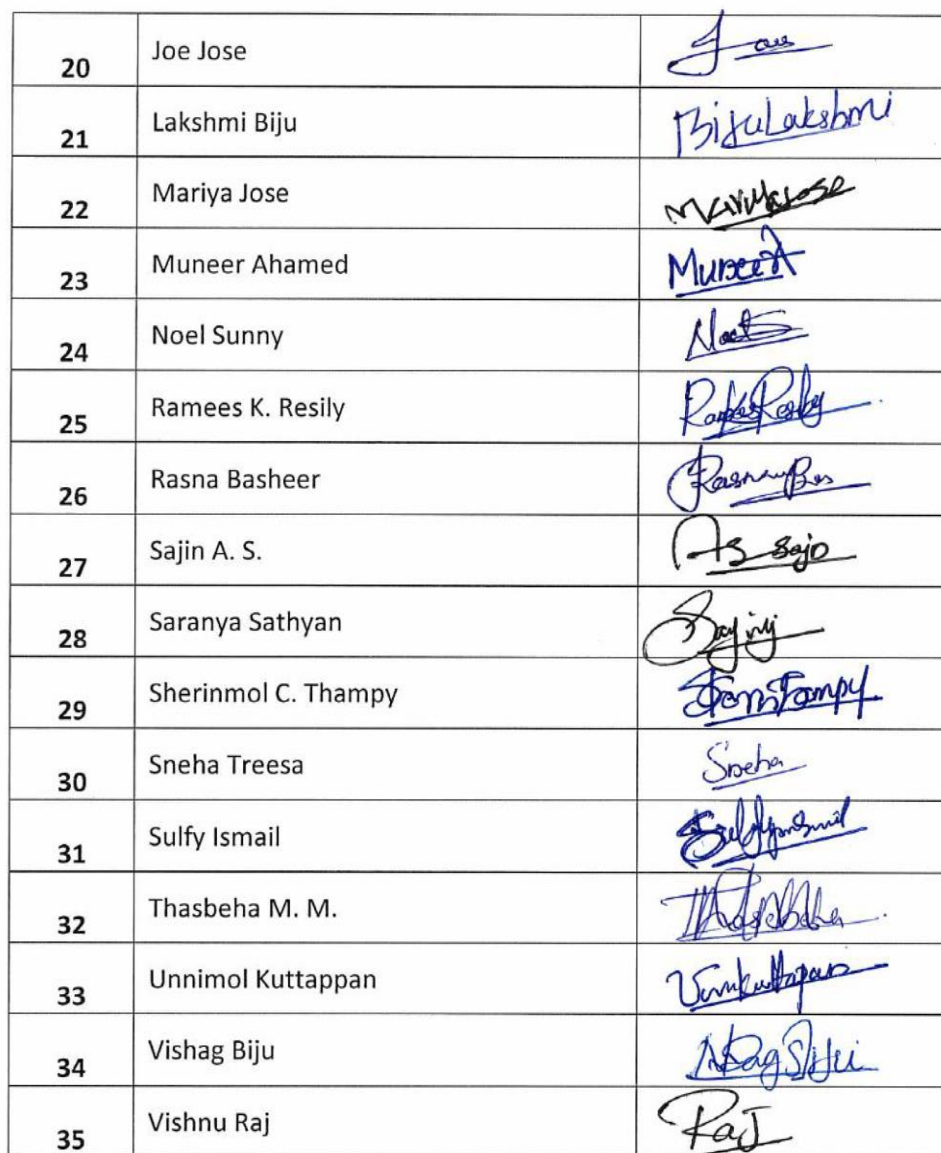 20 Joe Jose
21 Lakshmi Biju BijuLakshmi
22 Mariya Jose Mariya Jose
23 Muneer Ahamed Muneer A
24 Noel Sunny
25 Ramees K. Resily
26 Rasna Basheer
27 Sajin A. S. AS Sajo
28 Saranya Sathyan
29 Sherinmol C. Thampy
30 Sneha Treesa Sneha
31 Sulfy Ismail
32 Thasbeha M. M.
33 Unnimol Kuttappan
34 Vishag Biju
35 Vishnu Raj Raj